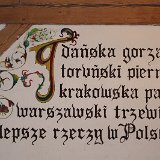 Gdańska gorza
toruński pierr
krakowska pa
warszawski trzewi
lepsze rzeczy w Pols